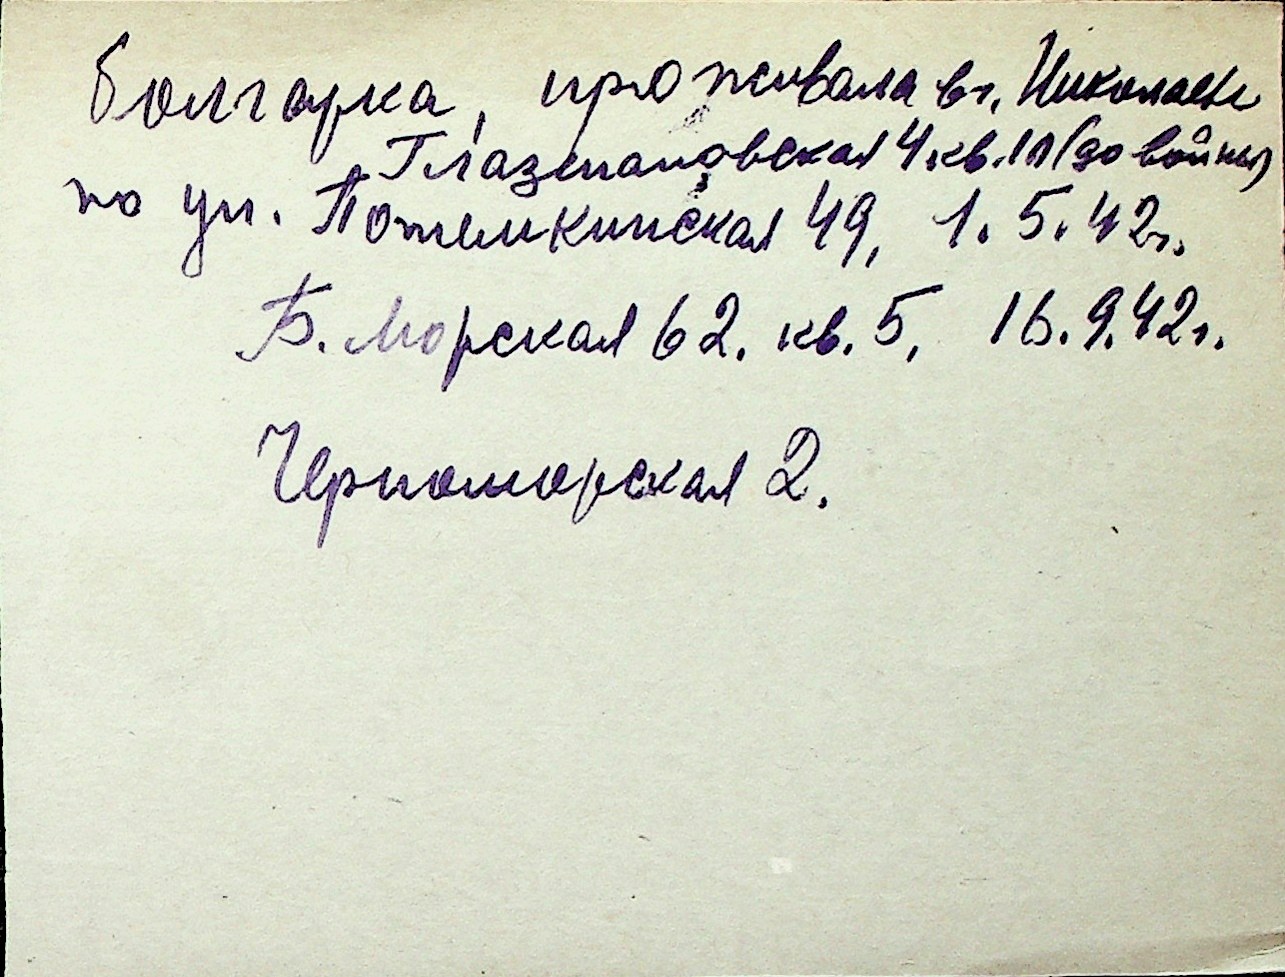 болгарка, проживала в г. Николаеве
Глазенаповская 4 кв. 11 (до войны)
по ул. Потемкинская 49, 1.5.42г.
Б. Морская 62. кв. 5, 16.9.42г.
Черноморская 2.